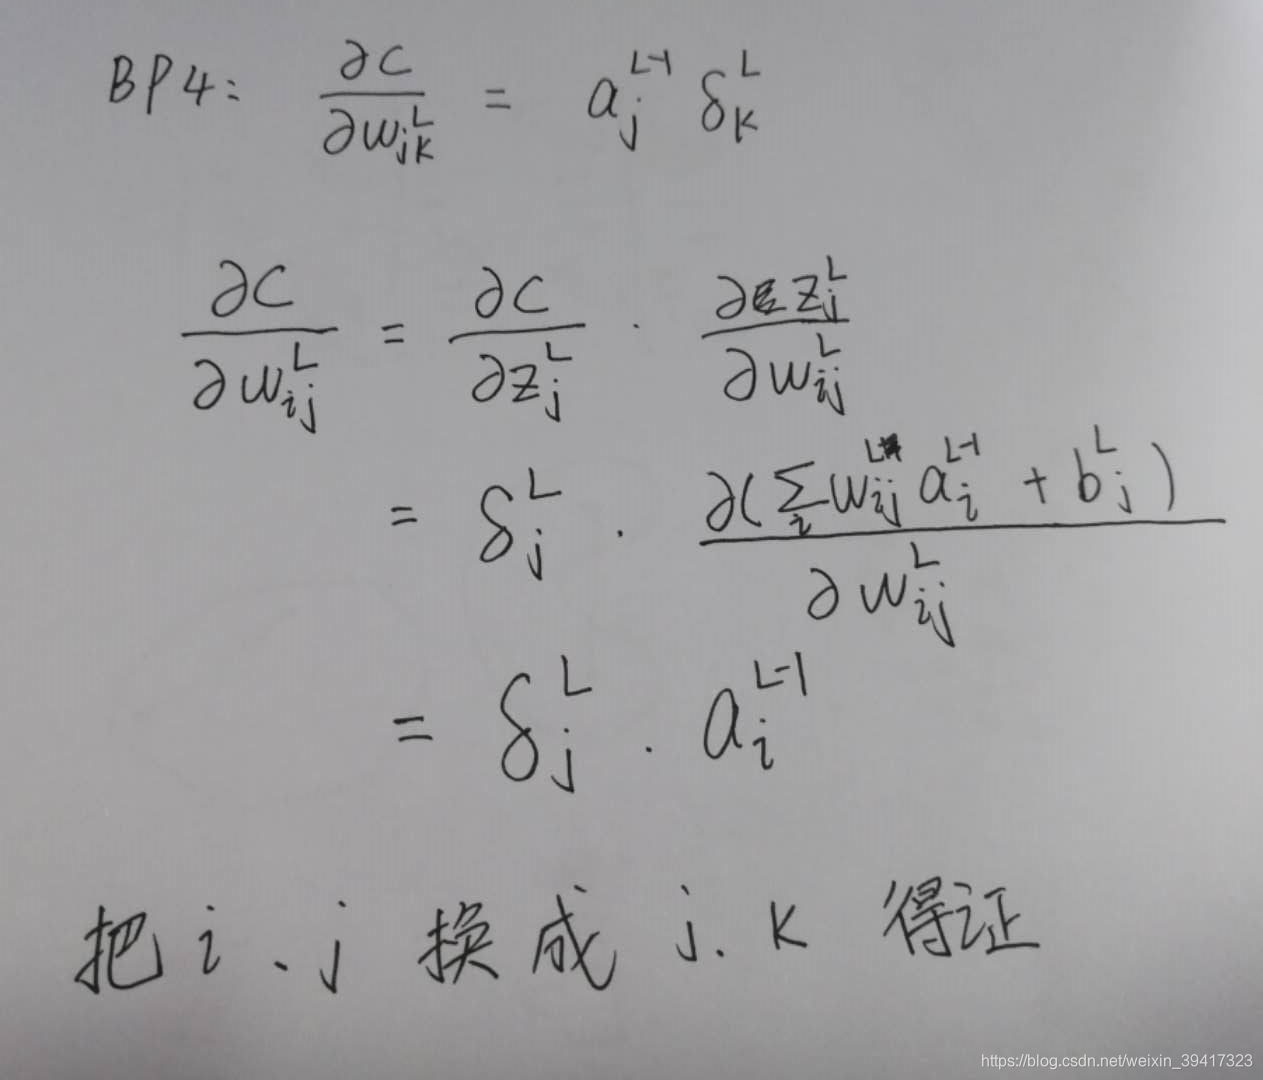 BP4: ∂C/∂w_{jk}^{L} = a_{j}^{L-1} δ_{k}^{L}
∂C/∂w_{ij}^{L} = ∂C/∂z_{j}^{L} · ∂z_{j}^{L}/∂w_{ij}^{L}
= δ_{j}^{L} · ∂(∑_{i} w_{ij}^{L} a_{i}^{L-1} + b_{j}^{L})/∂w_{ij}^{L}
= δ_{j}^{L} · a_{i}^{L-1}
把 i、j 换成 j、k 得证
https://blog.csdn.net/weixin_39417323